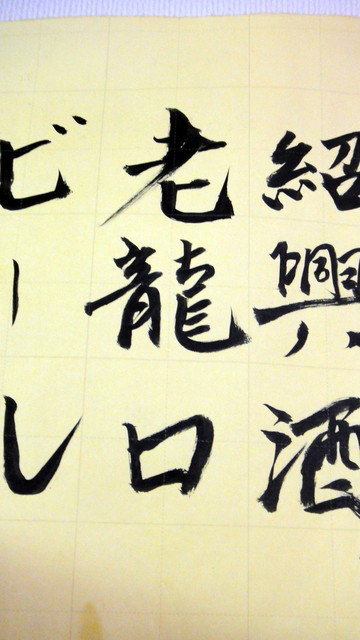 紹興酒
老龍口
ビール